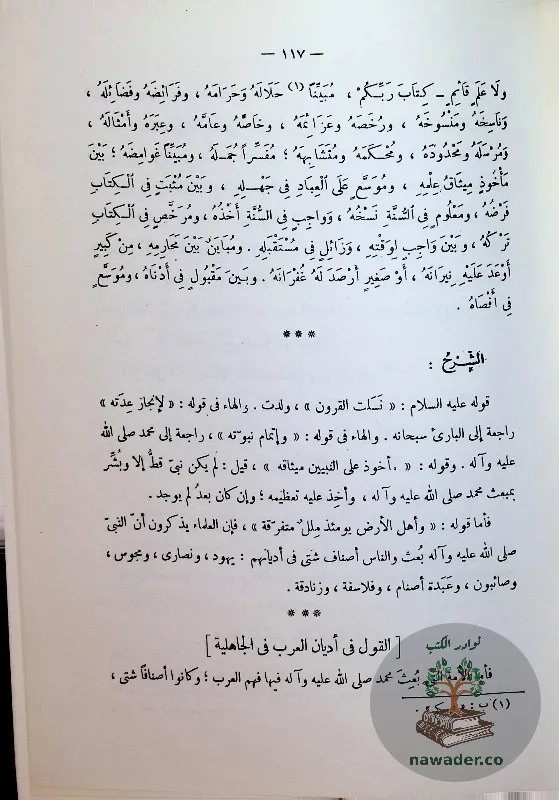 — ١١٧ —
ولَا عَلَمٍ قَائِمٍ – كِتَابَ رَبِّكُمْ ، مُبَيِّنًا (١) حَلَالَهُ وَحَرَامَهُ ، وفَرَائِضَهُ وَفَضَائِلَهُ ،
وَنَاسِخَهُ وَمَنْسُوخَهُ ، ورُخَصَهُ وَعَزَائِمَهُ ، وخَاصَّهُ وعَامَّهُ ، وعِبَرَهُ وأَمْثَالَهُ ،
وَمُرْسَلَهُ ومَحْدُودَهُ ، ومُحْكَمَهُ ومُتَشَابِهَهُ ؛ مُفَسِّرًا جُمَلَهُ ، ومُبَيِّنًا غَوَامِضَهُ ؛ بَيْنَ
مَأْخُوذٍ مِيثَاقُ عِلْمِهِ ، ومُوَسَّعٍ عَلَى الْعِبَادِ فِي جَهْلِهِ ، وبَيْنَ مُثْبَتٍ فِي الْكِتَابِ
فَرْضُهُ ، ومَعْلُومٍ فِي السُّنَّةِ نَسْخُهُ ، ووَاجِبٍ فِي السُّنَّةِ أَخْذُهُ ، ومُرَخَّصٍ فِي الْكِتَابِ
تَرْكُهُ ، وبَيْنَ وَاجِبٍ لِوَقْتِهِ ، وَزَائِلٍ فِي مُسْتَقْبَلِهِ . ومُبَايَنٌ بَيْنَ مَحَارِمِهِ ، مِنْ كَبِيرٍ
أَوْعَدَ عَلَيْهِ نِيرَانَهُ ، أَوْ صَغِيرٍ أَرْصَدَ لَهُ غُفْرَانَهُ . وبَيْنَ مَقْبُولٍ فِي أَدْنَاهُ ، ومُوَسَّعٍ
فِي أَقْصَاهُ .
***
الشَّرْحُ :
قوله عليه السلام : « نَسَلت القرون » ، ولدت . والهاء فى قوله : « لإنجاز عِدَته »
راجعة إلى البارئ سبحانه . والهاء فى قوله : « وإتمام نبوّته » ، راجعة إلى محمد صلى الله
عليه وآله . وقوله : « مأخوذ على النبيين ميثاقه » ، قيل : لم يكن نبىّ قطّ إلا وبُشِّر
بمبعث محمد صلى الله عليه وآله ، وأُخِذ عليه تعظيمه ؛ وإن كان بعدُ لم يوجد .
فأما قوله : « وأهل الأرض يومئذ مِللٌ متفرّقة » ، فإن العلماء يذكرون أنّ النبىّ
صلى الله عليه وآله بُعث والناس أصناف شتى فى أديانهم : يهود ، ونصارى ، ومجوس ،
وصائبون ، وعَبَدة أصنام ، وفلاسفة ، وزنادقة .
***
[ القول فى أديان العرب فى الجاهلية ]
فأما الأمة التى بُعِثَ محمد صلى الله عليه وآله فيها فهم العرب ؛ وكانوا أصنافًا شتى ،
(١) ب :
نوادر الكتب
nawader.co